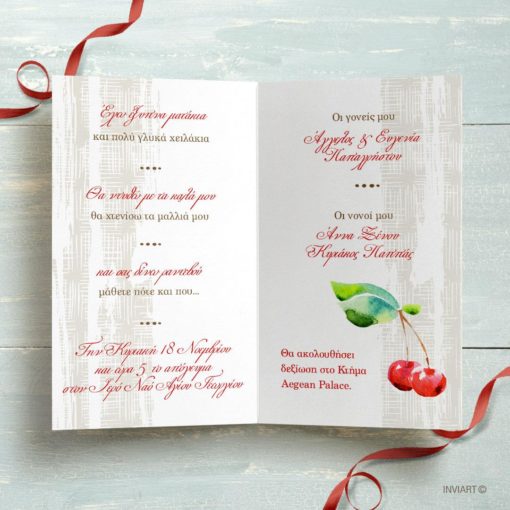 Έχω έξυπνα ματάκια
και πολύ γλυκά χειλάκια
Θα ντυθώ με τα καλά μου
θα χτενίσω τα μαλλιά μου
και σας δίνω ραντεβού
μάθετε πότε και που...
Την Κυριακή 18 Νοεμβρίου
και ώρα 5 το απόγευμα
στον Ιερό Ναό Αγίου Γεωργίου
Οι γονείς μου
Άγγελος & Ευγενία
Παπαχρήστου
Οι νονοί μου
Άννα Ξένου
Κυριάκος Παππάς
Θα ακολουθήσει
δεξίωση στο Κτήμα
Aegean Palace.
INVIART ©